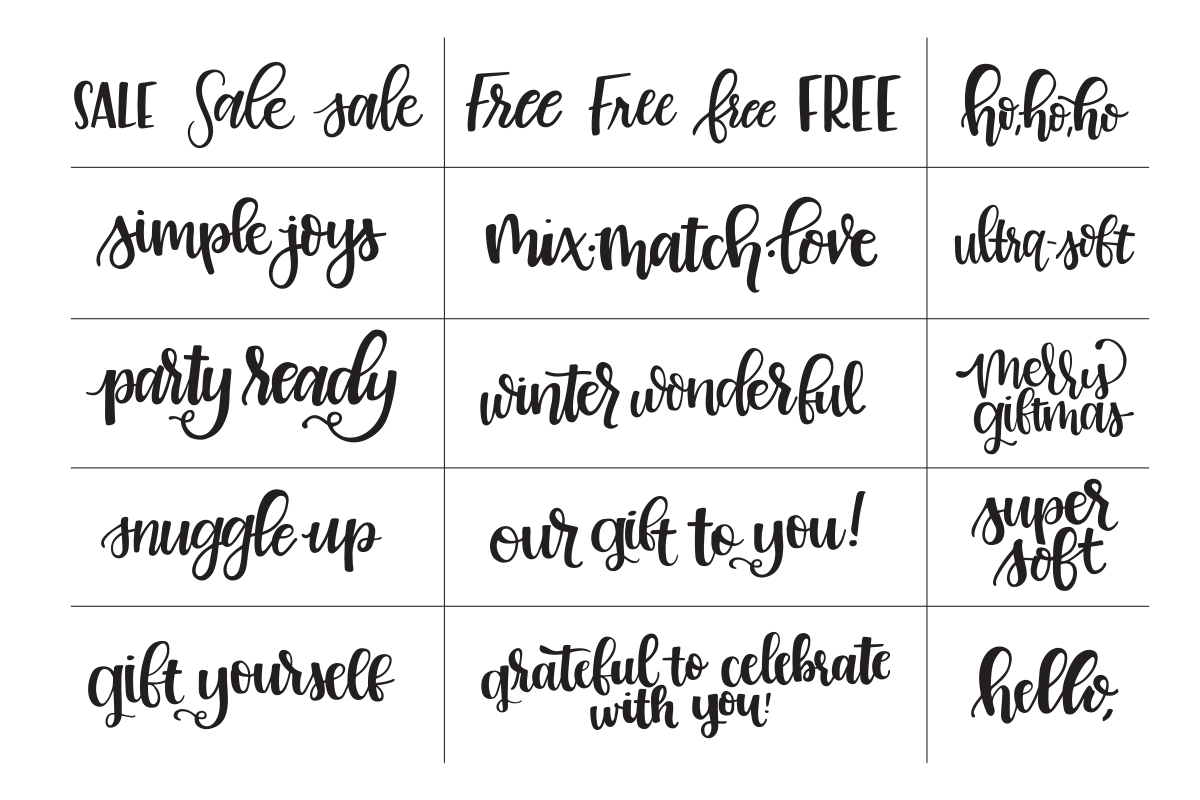 SALE Sale sale
Free Free free FREE
ho,ho,ho
simple joys
mix·match·love
ultra-soft
party ready
winter wonderful
merry
giftmas
snuggle up
our gift to you!
super
soft
gift yourself
grateful to celebrate
with you!
hello,